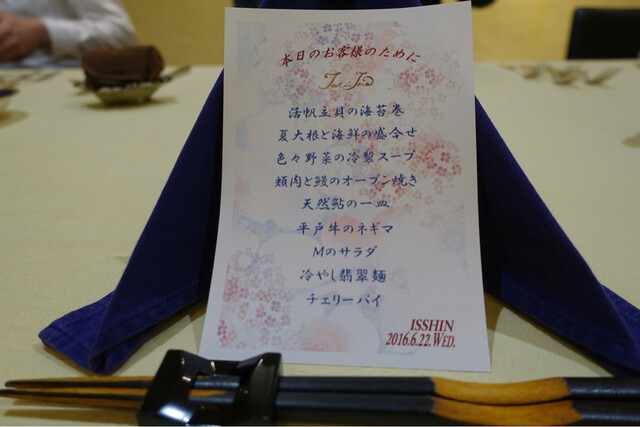 本日のお客様のために
活帆立貝の海苔巻
夏大根と海鮮の盛合せ
色々野菜の冷製スープ
頬肉と鰻のオーブン焼き
天然鮎の一皿
平戸牛のネギマ
Mのサラダ
冷やし翡翠麺
チェリーパイ
ISSHIN
2016.6.22.WED.